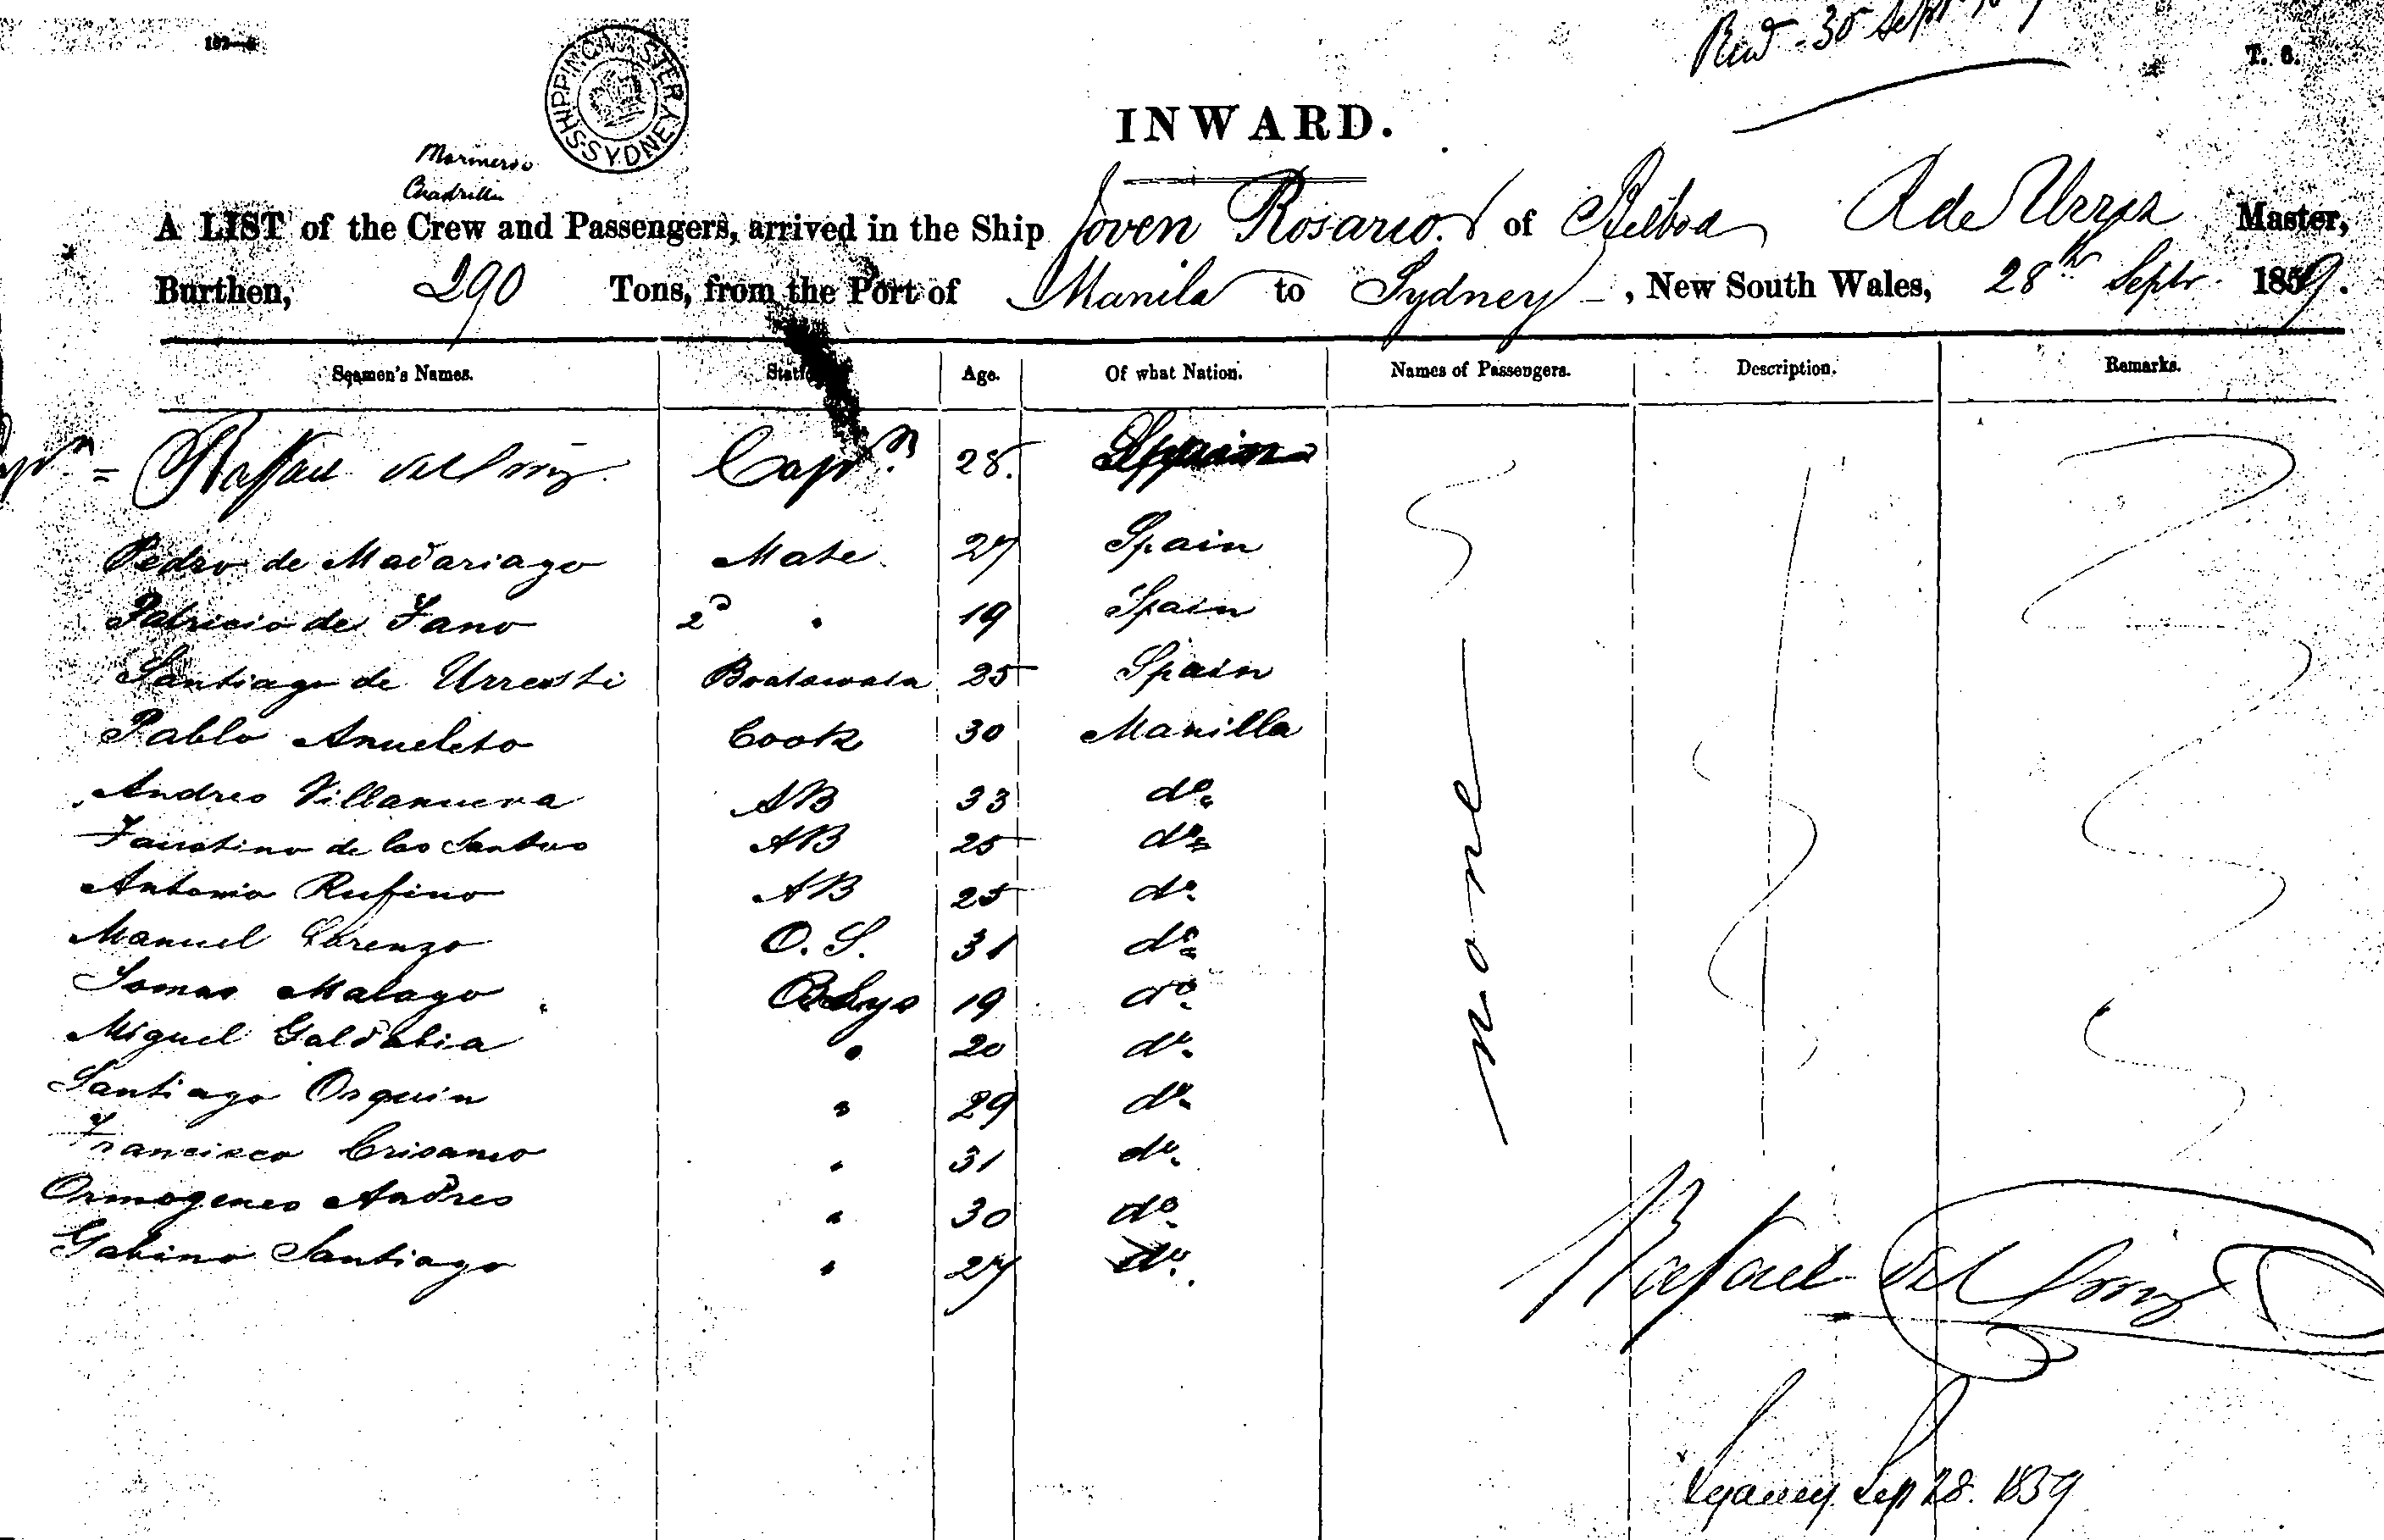 Recd 30 Sept
T. 6.
SHIPPING MASTER SYDNEY
INWARD.
Marineros
Cuadrilla
A LIST of the Crew and Passengers, arrived in the Ship Joven Rosario of Bilboa R de Urres Master,
Burthen, 290 Tons, from the Port of Manila to Sydney, New South Wales, 28th Septr. 1859.
Seamen's Names. Age. Of what Nation. Names of Passengers. Description. Remarks.
Rafael Captn. 28. Spain
Pedro de Madariago Mate 27 Spain
Patricio de Fano 2d " 19 Spain
Santiago de Urresti Boatswain 25 Spain
Pablo Anucleto Cook 30 Manilla
Andres Villanueva AB 33 do.
Faustino de los Santos AB 25 do.
Antonio Rufino AB 25 do.
Manuel Lorenzo O.S. 31 do.
Tomas Malayo 19 do.
Miguel Galdabia " 20 do.
Santiago Osquin " 29 do.
Francisco Crisanto " 31 do.
Ormogenes Andres " 30 do.
Gabino Santiago " 27 do.
none
Rafael
Sydney Sep 28. 1859